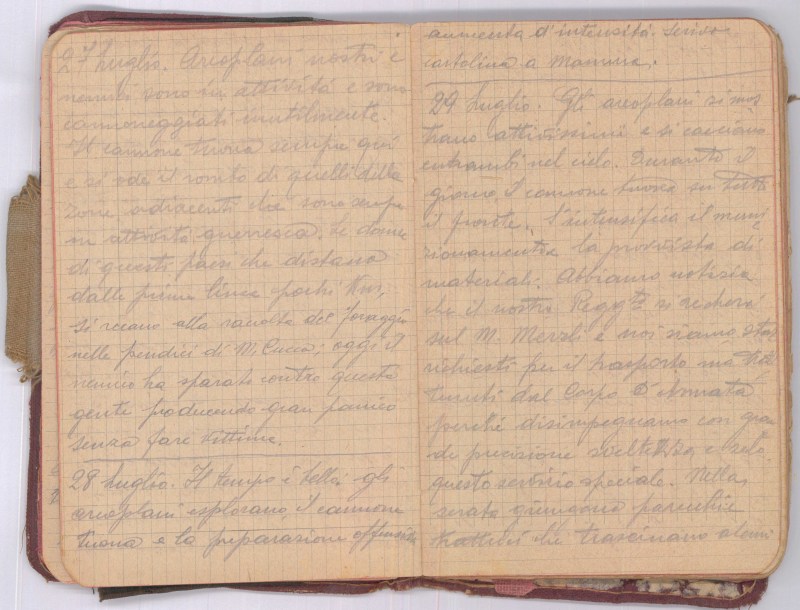 27 Luglio. Areoplani nostri e
nemici sono in attività e sono
cannoneggiati inutilmente.
Il cannone tuona sempre qui
e si ode il rombo di quelli della
zone adiacenti che sono sempre
in attività guerresca. Le donne
di questi paesi che distano
dalle prime linee pochi Km,
si recano alla raccolta del foraggio
nelle pendici di M. Cucco; oggi il
nemico ha sparato contro questa
gente producendo gran panico
senza fare vittime.
28 Luglio. Il tempo è bello; gli
areoplani esplorano, il cannone
tuona e la preparazione offensiva
aumenta d'intensità. Scrivo
cartolina a Mamma.
29 Luglio. Gli areoplani si mos
trano attivissimi e si cacciano
entrambi nel cielo. Durante il
giorno il cannone tuona su tutto
il fronte, s'intensifica il muni
zionamento e la provvista di
materiali. Abbiamo notizia
che il nostro Regg.to si recherà
sul M. Merzli e noi siamo stati
richiesti per il trasporto
dal Corpo d'Armata
perché disimpegnamo con gran
de precisione sveltezza e zelo
questo servizio speciale. Nella
serata giungono parecchie
trattrici che trascinano alcuni